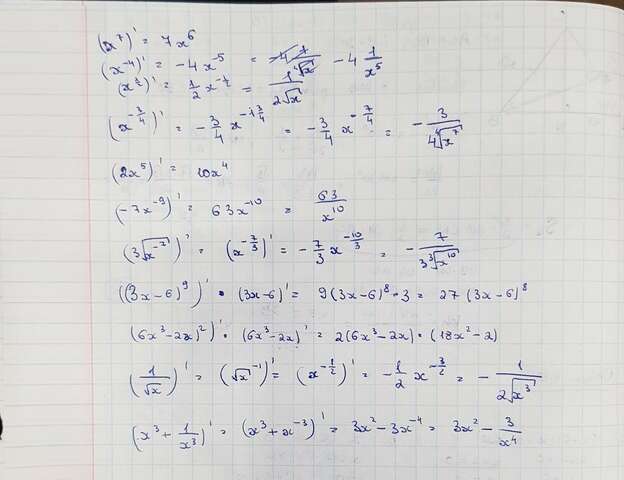 (x⁷)' = 7x⁶
(x⁻⁴)' = -4x⁻⁵ = -4 1/x⁵
(x^(1/2))' = 1/2 x^(-1/2) = 1/(2√x)
(x^(-3/4))' = -3/4 x^(-1 3/4) = -3/4 x^(-7/4) = -3/(4 ⁴√x⁷)
(2x⁵)' = 10x⁴
(-7x⁻⁹)' = 63x⁻¹⁰ = 63/x¹⁰
(3√x⁻⁷)' = (x^(-7/3))' = -7/3 x^(-10/3) = -7/(3 ³√x¹⁰)
((3x-6)⁹)' · (3x-6)' = 9(3x-6)⁸ · 3 = 27(3x-6)⁸
(6x³-2x)²)' · (6x³-2x)' = 2(6x³-2x) · (18x²-2)
(1/√x)' = (√x⁻¹)' = (x^(-1/2))' = -1/2 x^(-3/2) = -1/(2√x³)
(x³ + 1/x³)' = (x³+x⁻³)' = 3x² - 3x⁻⁴ = 3x² - 3/x⁴